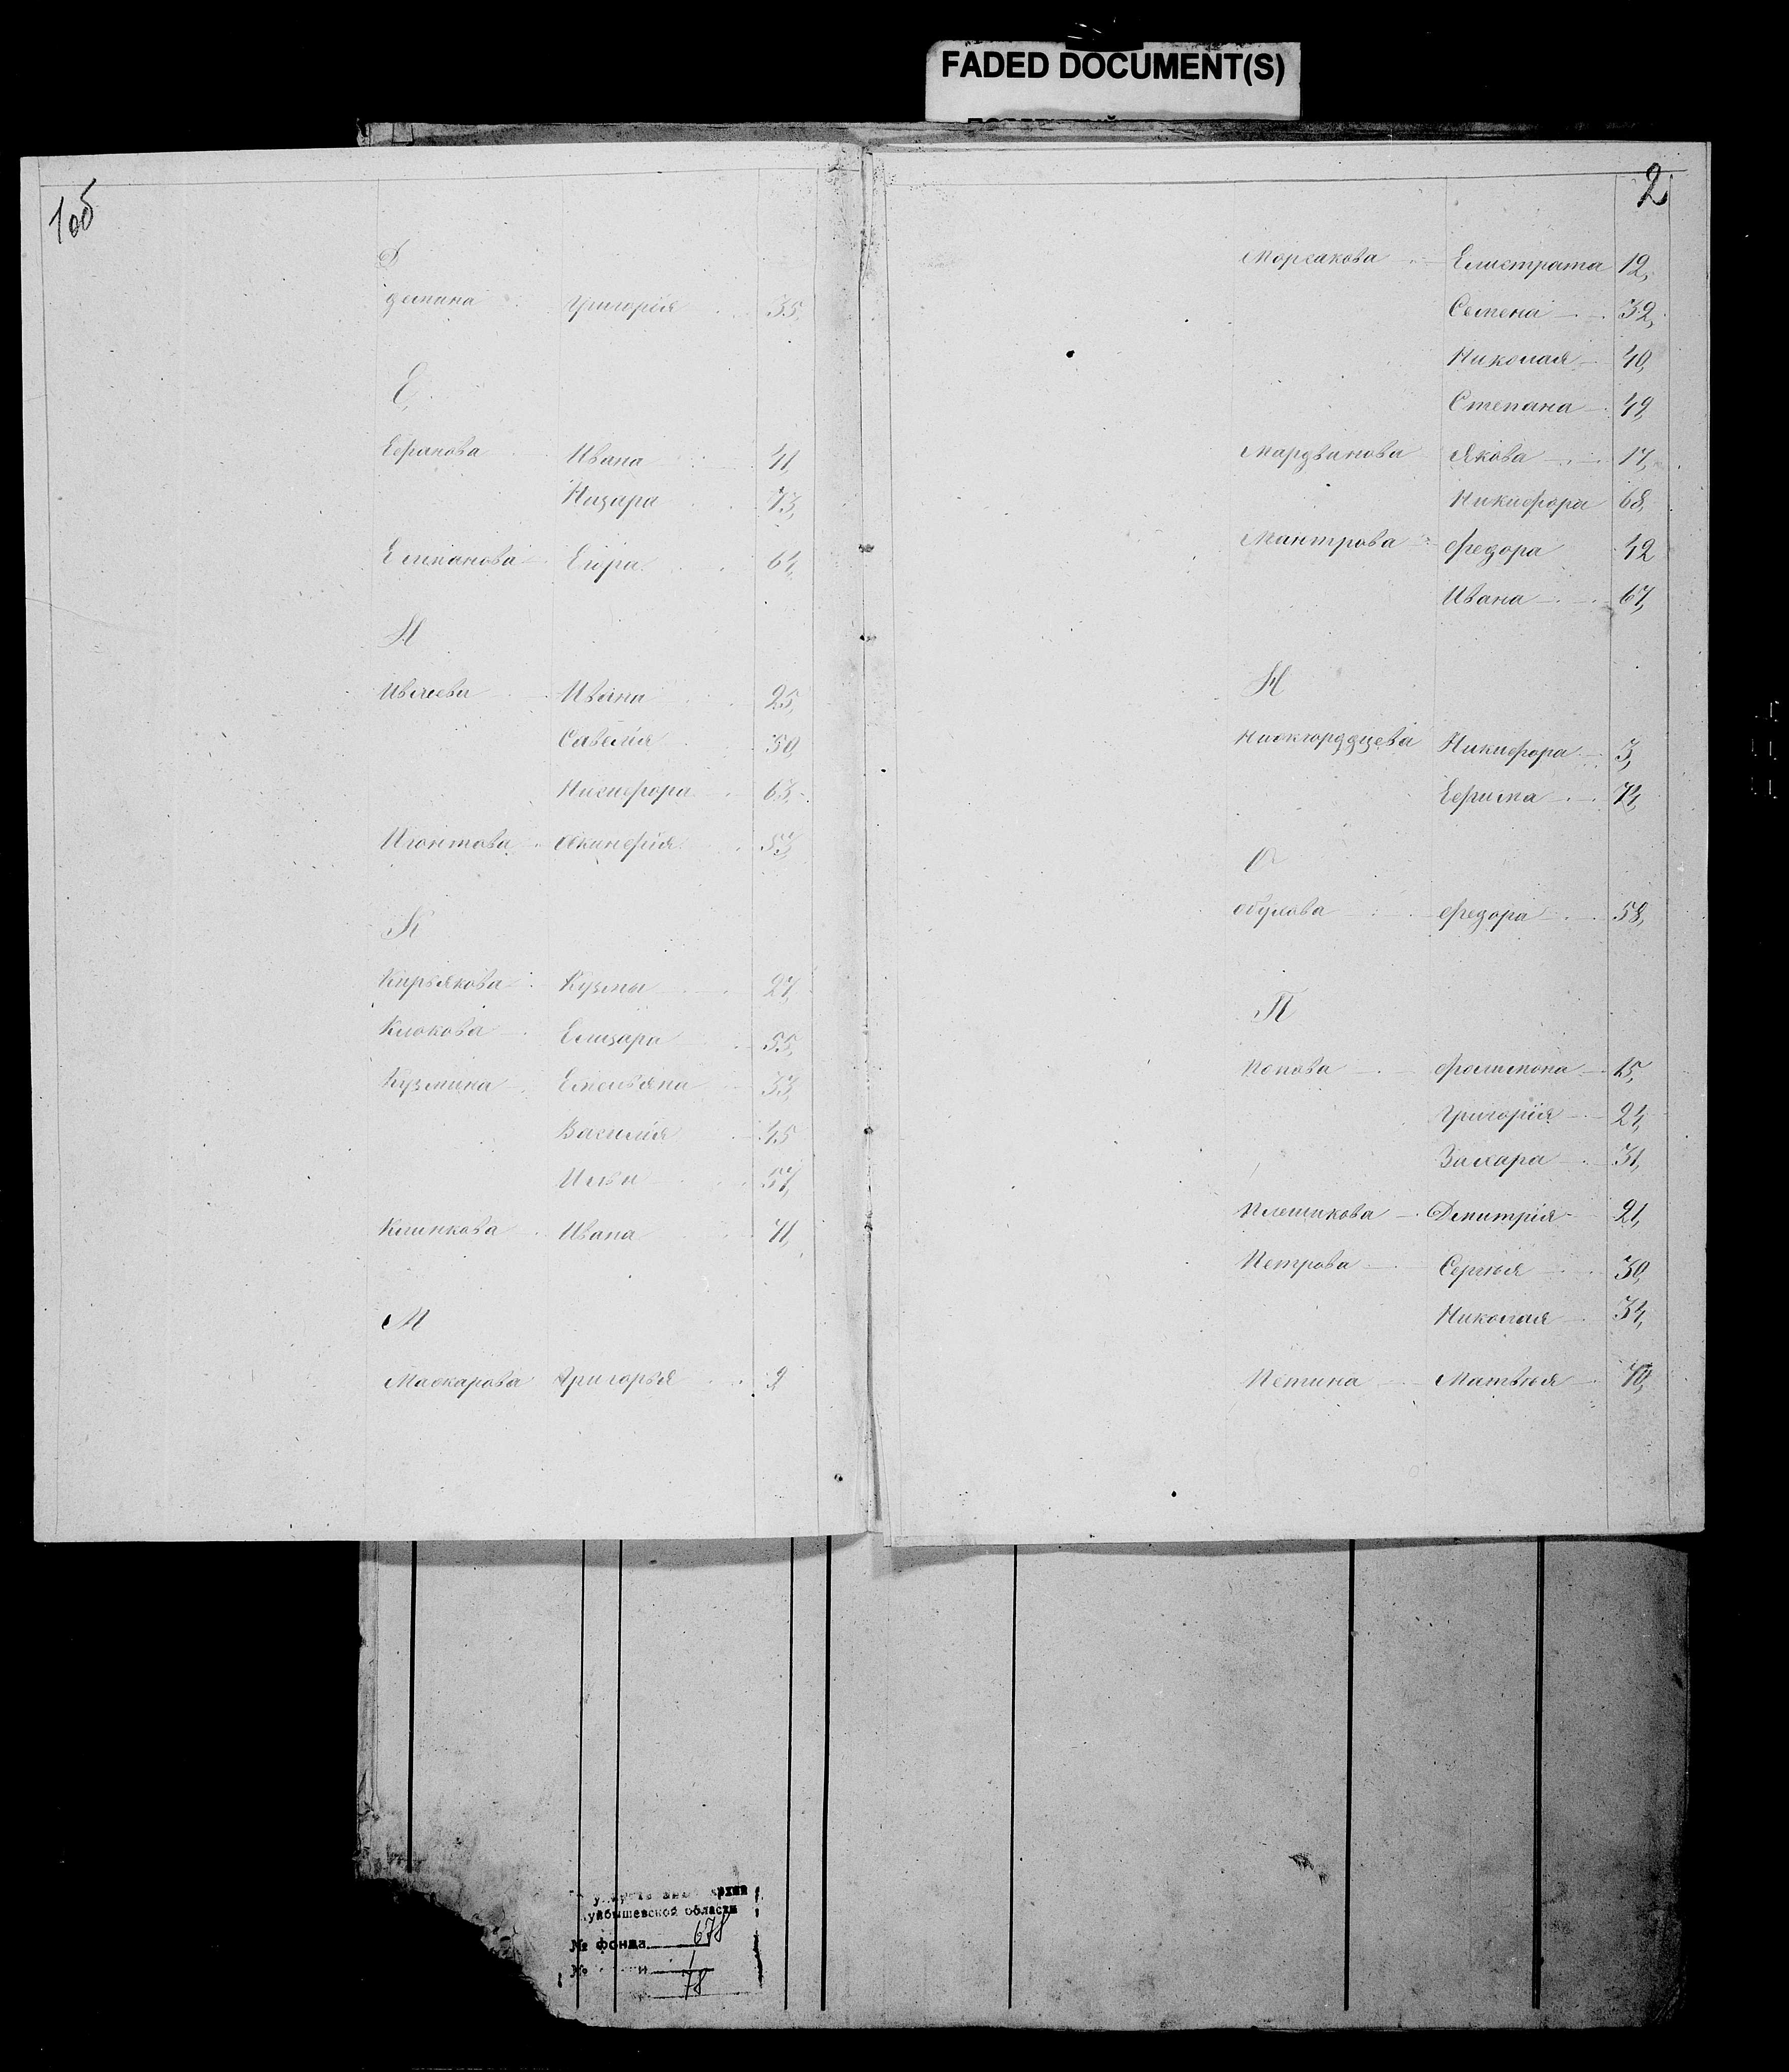 FADED DOCUMENT(S)
1об
Д
Демина Григорія 35,
Е
Ефимова Ивана 41,
Назара 73,
Еликанова Егора 64,
И
Ивлиева Ивана 25,
Савелія 50,
Никифора 63,
Игонтова Акинфія 53,
К
Кирьякова Кузмы 27,
Клюкова Елизара 55,
Кузмина Емельяна 33,
Василія 45
Ильи 57,
Клинкова Ивана 71,
М
Маокарова Григорья 2
2
Морсакова Елистрата 12,
Семена 32,
Николая 40,
Степана 49,
Мордвинова Якова 17,
Никифора 68,
Мантрова Федора 42
Ивана 67,
Н
Никифора 3,
Ефима 74,
О
Обухова Федора 58,
П
Попова Филимона 15,
Григорія 24,
Захара 31,
Плешикова Дмитрія 21,
Петрова Сергѣя 30,
Николая 34,
Петина Матвѣя 70,
архив
Куйбышевской области
№ фонда 678
№ 1
78